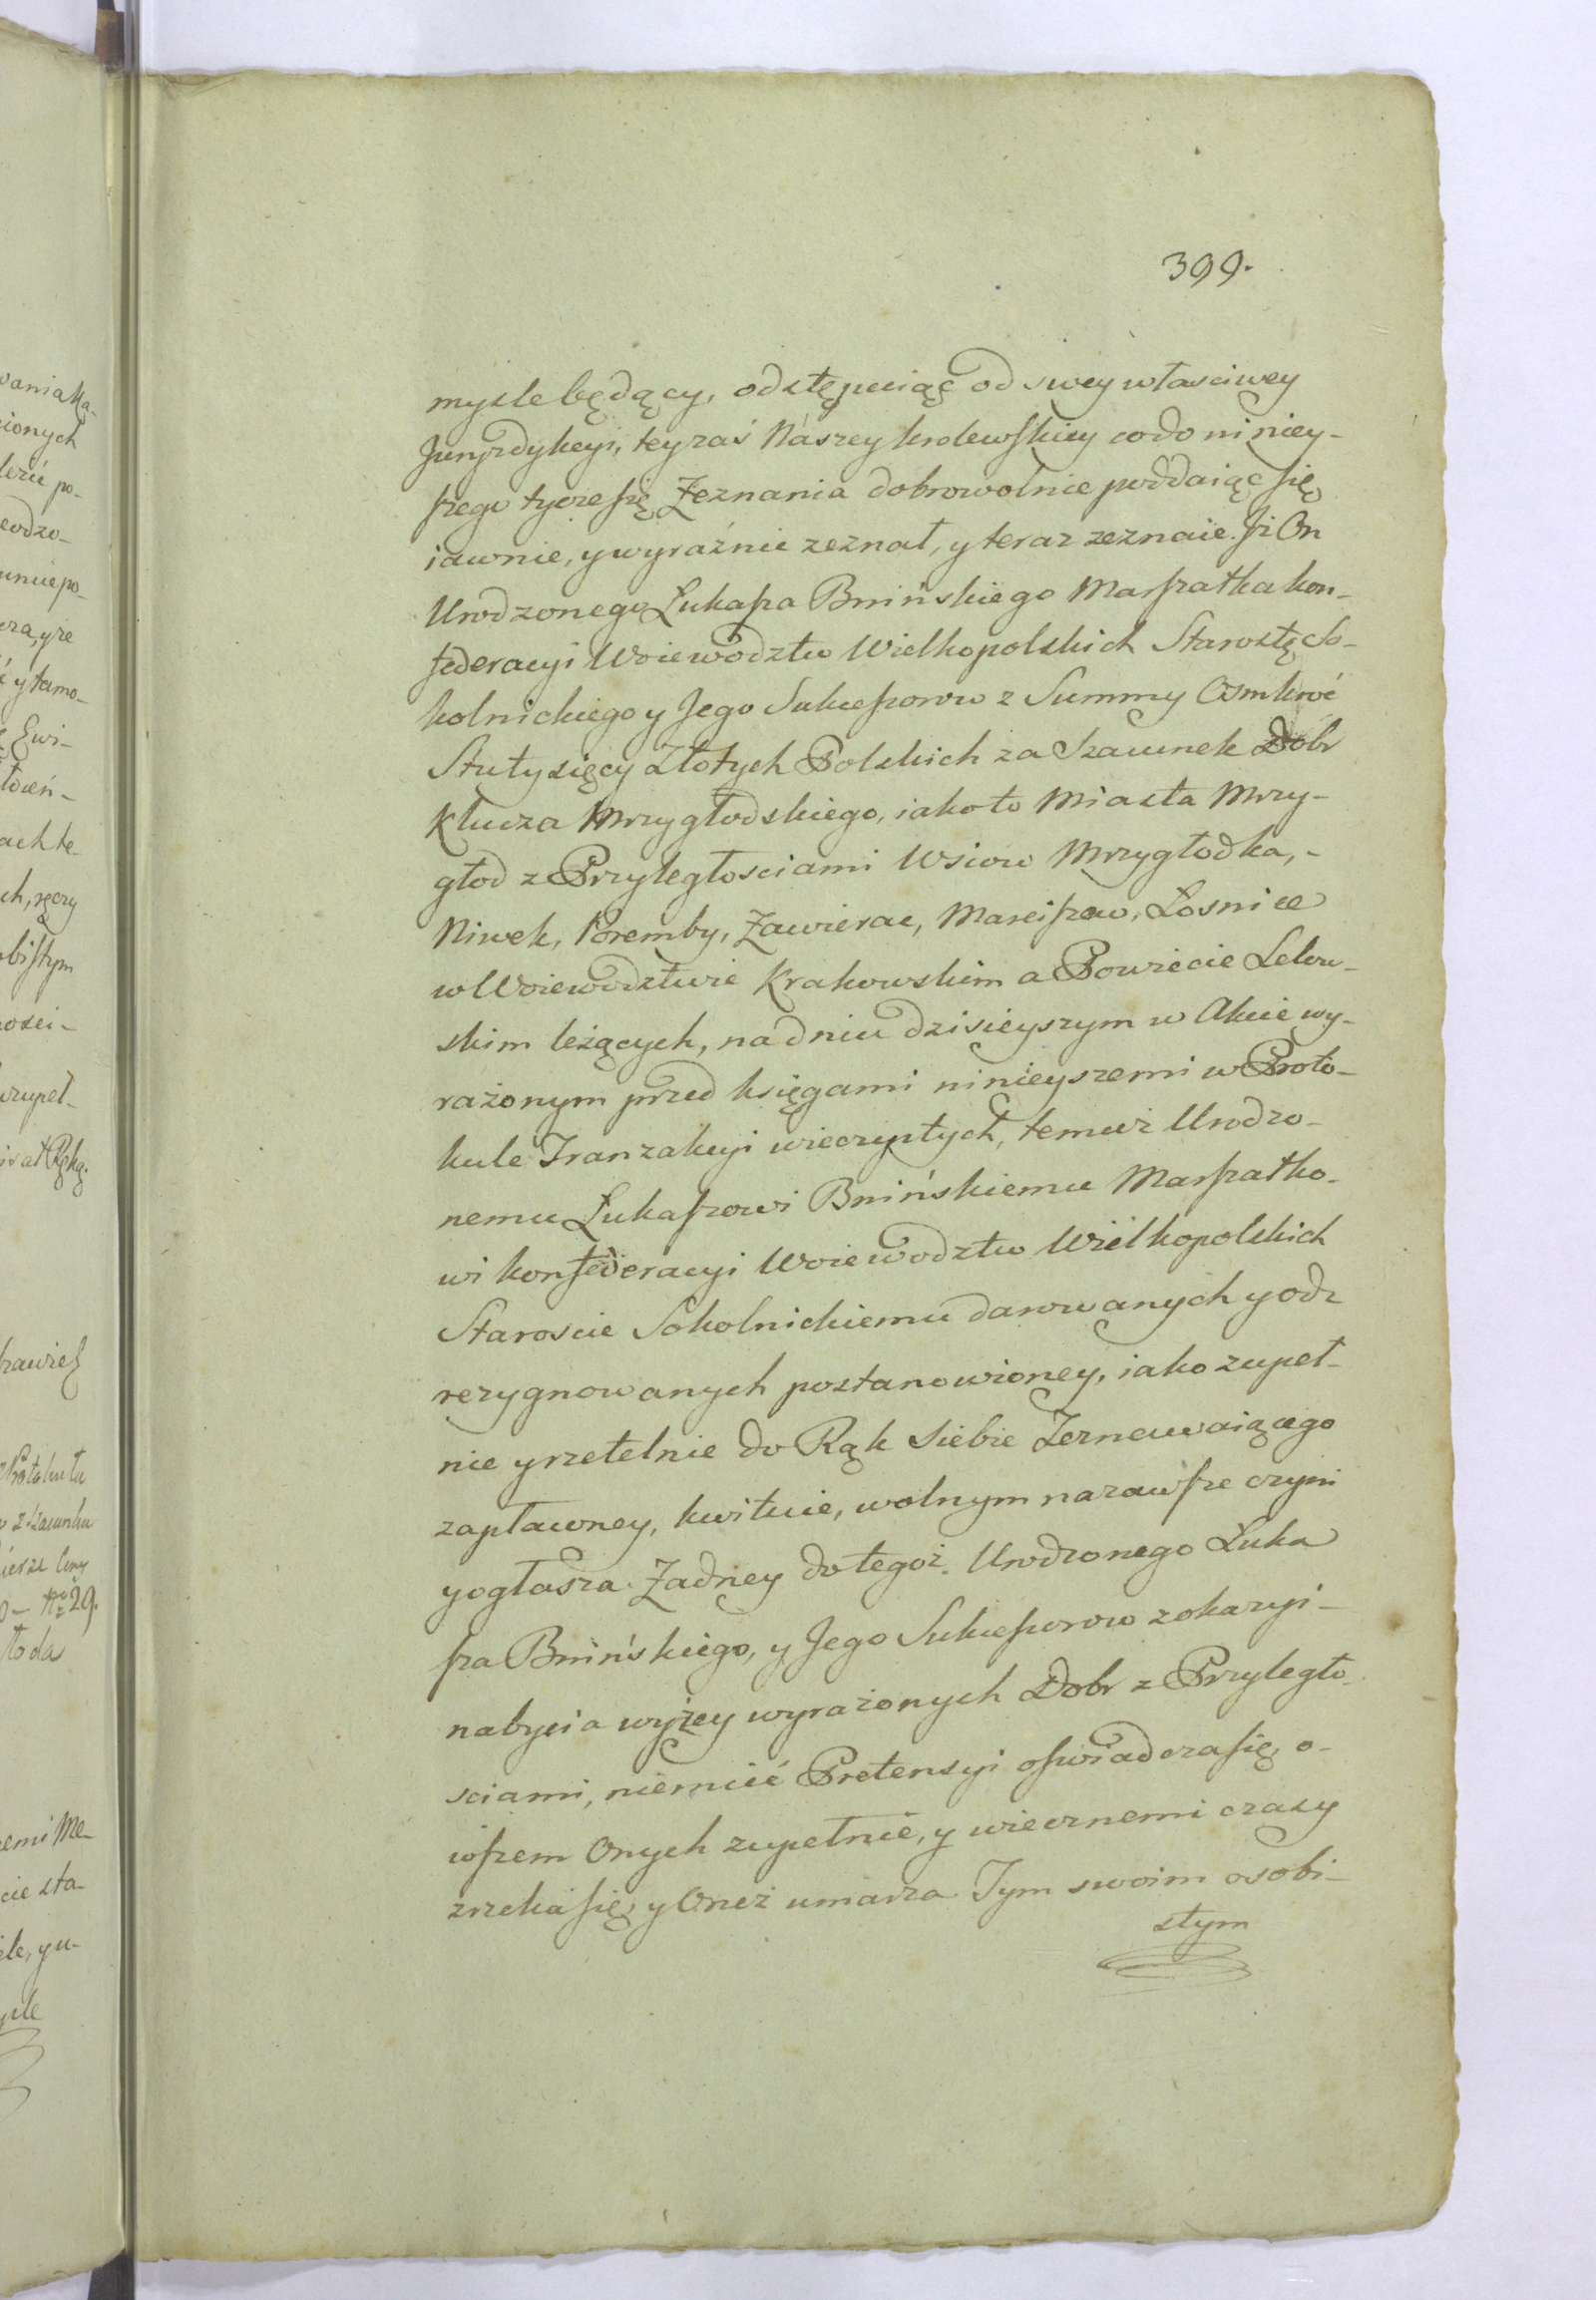 399.
myśle będący, odstępuiąc od swey własciwey
Juryzdykcyi, tey zaś Naszey krolewskiey co do niniey-
szego tycze się Zeznania dobrowolnie poddaiąc się
iawnie, y wyraźnie zeznał, y teraz zeznaie. Jż On
Urodzonego Łukasza Bnińskiego Marszałka kon-
federacyi Woiewodztw Wielkopolskich Starostę So-
kolnickiego y Jego Sukcessorow z Summy Osmkroć
Stutysięcy Złotych Polskich za Szacunek Dobr
Klucza Mrzygłodskiego, iako to Miasta Mrzy-
głod z Przyległosciami Wsiow Mrzygłodka,-
Niwek, Poremby, Zawierac, Marciszow, Łosnice
w Woiewodztwie Krakowskim a Powiecie Lelow-
skim leżących, na dniu dzisieyszym w Akcie wy-
rażonym przed księgami ninieyszemi w Proto-
kule Tranzakcyi wieczystych, temuż Urodzo-
nemu Łukaszowi Bnińskiemu Marszałko-
wi konfederacyi Woiewodztw Wielkopolskich
Staroscie Sokolnickiemu darowanych y odz
rezygnowanych postanowioney, iako zupeł-
nie y rzetelnie do Rąk Siebie Zeznawaiącego
zapłaconey, kwituie, wolnym na zawsze czyni
y ogłasza. Żadney do tegoż Urodzonego Łuka
sza Bnińskiego, y Jego Sukcessorow z okazyi-
nabycia wyżey wyrażonych Dobr z Przyległo-
sciami, niemieć Pretensyi oswiadcza się, o-
wszem Onych zupełnie, y wiecznemi czasy
zrzeka się, y Oneż umarza. Tym swoim osobi-
stym
vania
ionych
po-
y tamo-
ach te-
ch, ręczy
bistym
Rękę.
29.
emi Me-
cie sta-